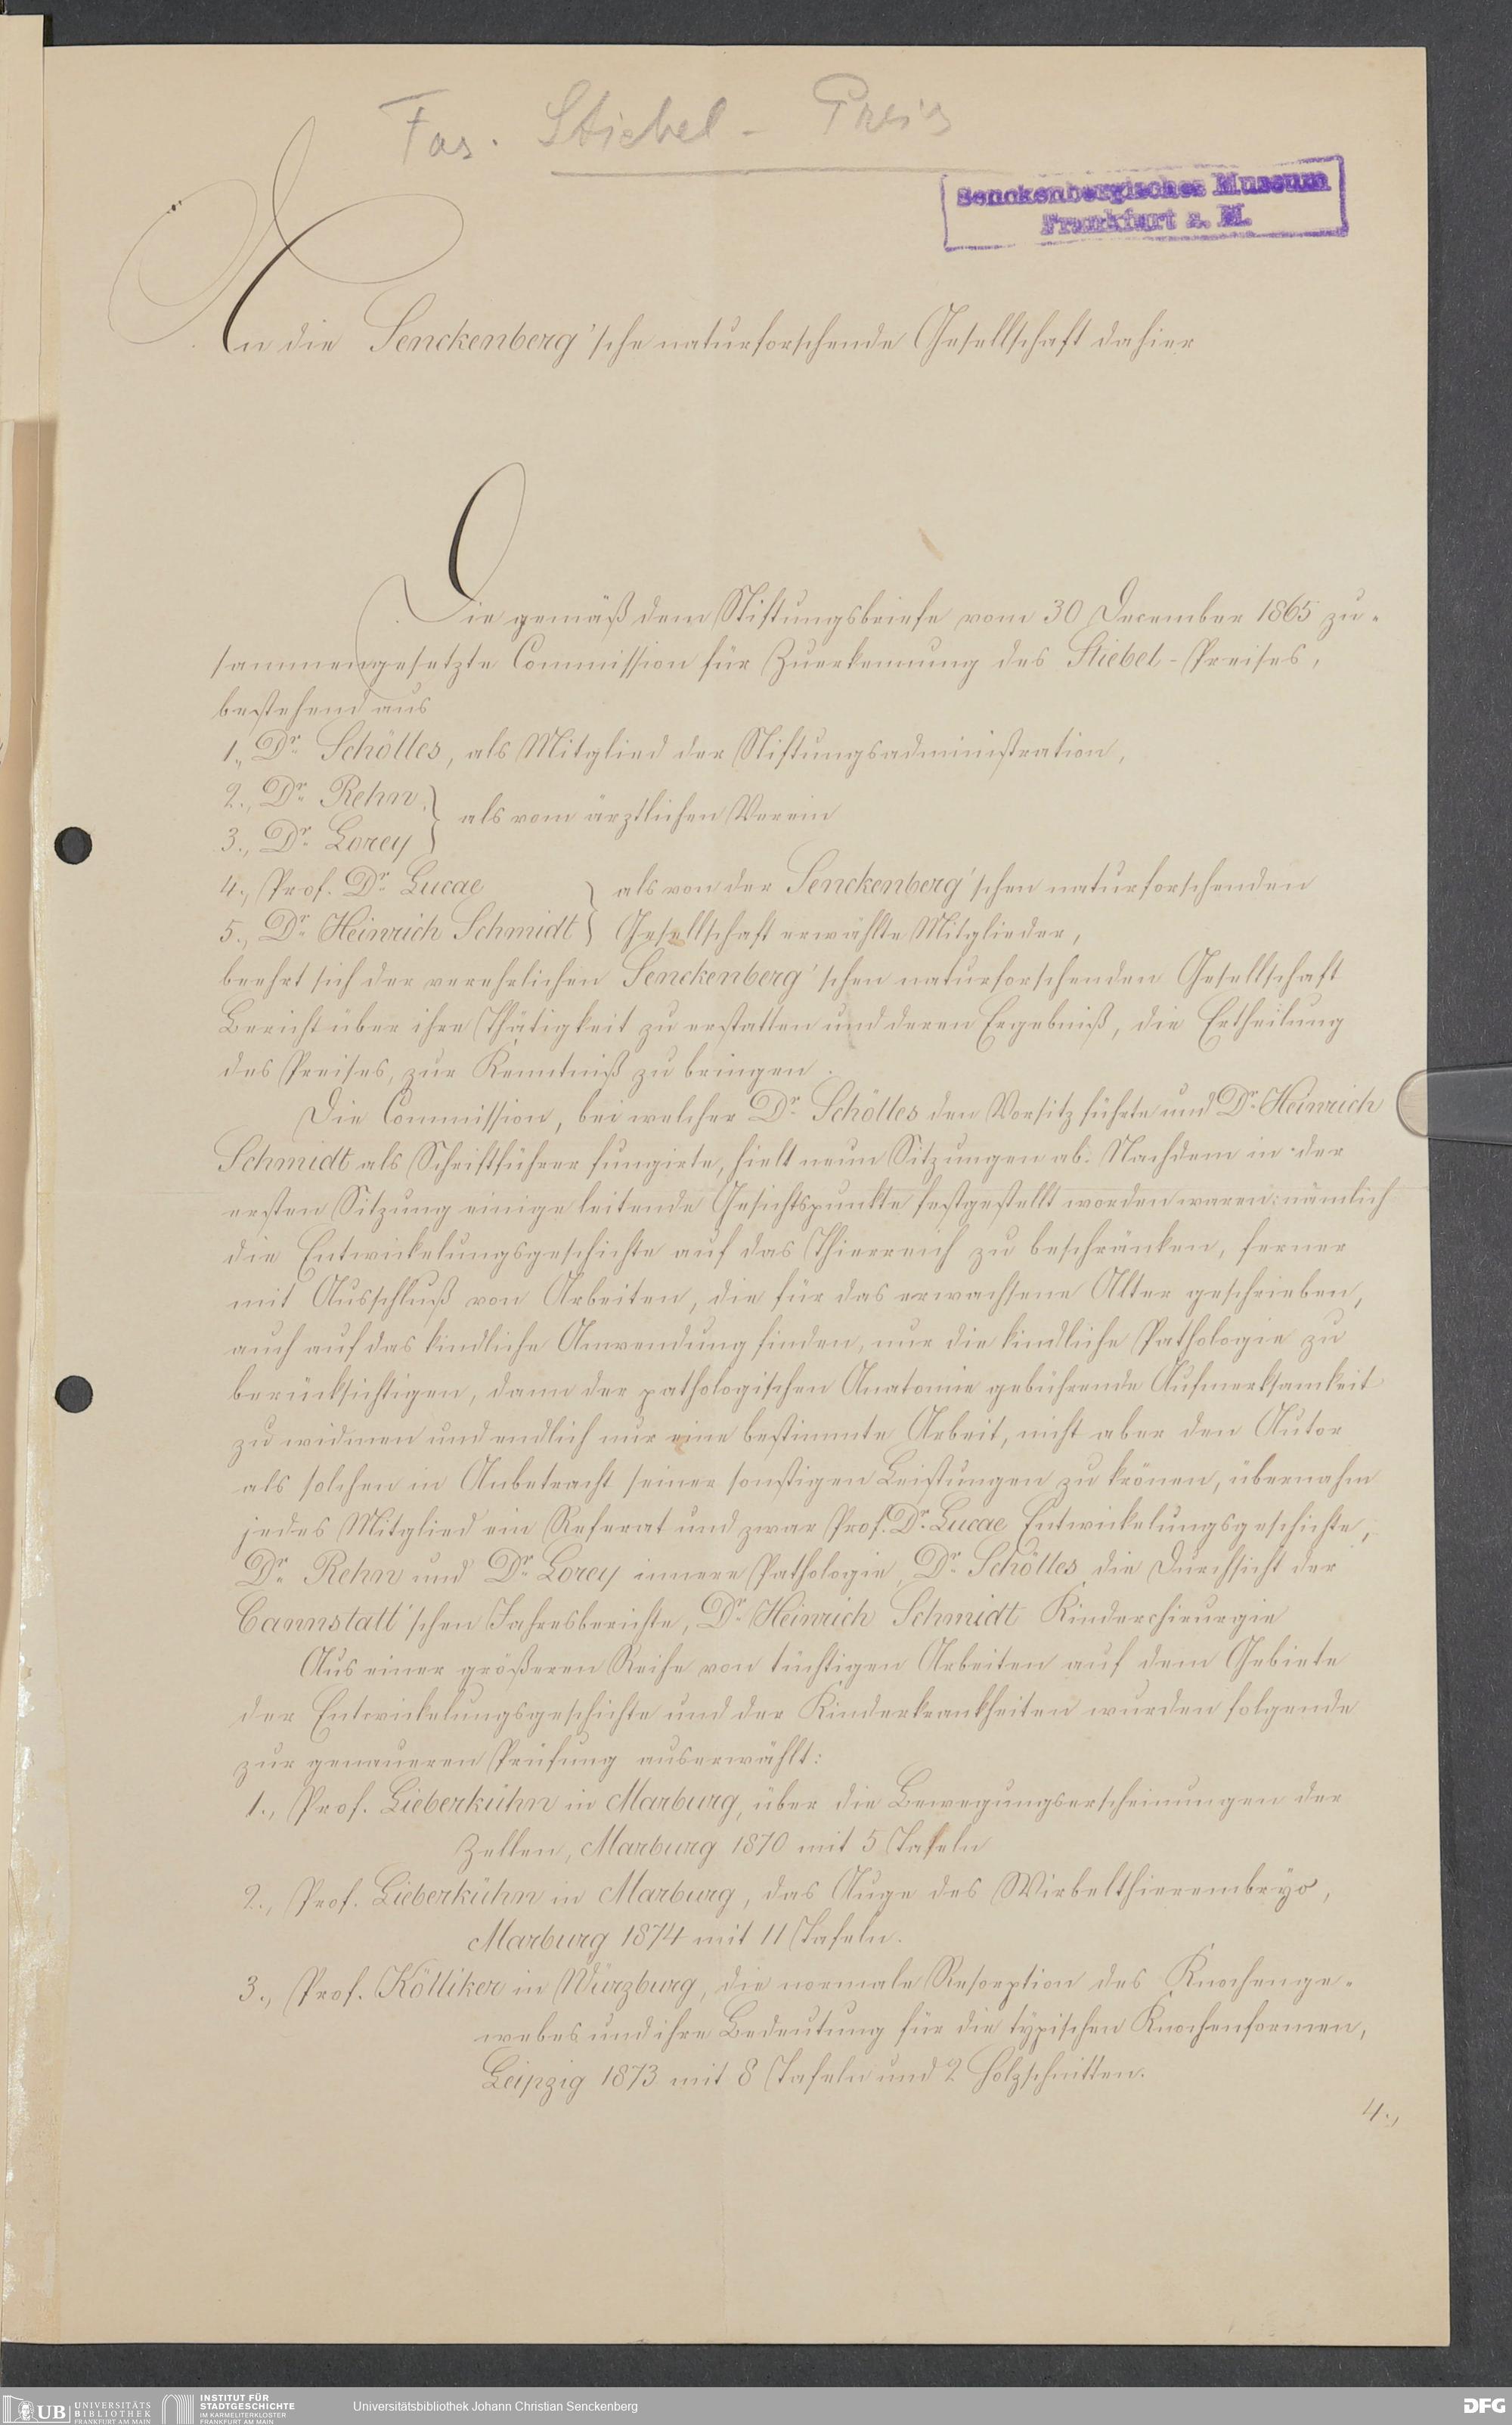 Fas. Stiebel - Preis
Senckenbergisches Museum
Frankfurt a. M.
An die Senckenberg'sche naturforschende Gesellschaft dahier
Die gemäß dem Stiftungsbriefe vom 30 December 1865 zu-
sammengesetzte Commission für Zuerkennung des Stiebel-Preises,
bestehend aus
1., Dr. Schölles, als Mitglied der Stiftungsadministration,
2., Dr. Rehn
3., Dr. Lorey } als vom ärztlichen Verein
4., Prof. Dr. Lucae } als von der Senckenberg'schen naturforschenden
5., Dr. Heinrich Schmidt } Gesellschaft erwählte Mitglieder,
beehrt sich der verehrlichen Senckenberg'schen naturforschenden Gesellschaft
Bericht über ihre Thätigkeit zu erstatten und deren Ergebniß, die Ertheilung
des Preises, zur Kenntniß zu bringen.
Die Commission, bei welcher Dr. Schölles den Vorsitz führte und Dr. Heinrich
Schmidt als Schriftführer fungirte, hielt neun Sitzungen ab. Nachdem in der
ersten Sitzung einige leitende Gesichtspunkte festgestellt worden waren: nämlich
die Entwickelungsgeschichte auf das Thierreich zu beschränken, ferner
mit Ausschluß von Arbeiten, die für das erwachsene Alter geschrieben,
auch auf das kindliche Anwendung finden, nur die kindliche Pathologie zu
berücksichtigen, dann der pathologischen Anatomie gebührende Aufmerksamkeit
zu widmen und endlich nur eine bestimmte Arbeit, nicht aber den Autor
als solchen in Anbetracht seiner sonstigen Leistungen zu krönen, übernahm
jedes Mitglied ein Referat und zwar Prof. Dr. Lucae Entwickelungsgeschichte,
Dr. Rehn und Dr. Lorey innere Pathologie, Dr. Schölles die Durchsicht der
Cannstatt'schen Jahresberichte, Dr. Heinrich Schmidt Kinderchirurgie
Aus einer größeren Reihe von tüchtigen Arbeiten auf dem Gebiete
der Entwickelungsgeschichte und der Kinderkrankheiten wurden folgende
zur genaueren Prüfung auserwählt:
1., Prof. Lieberkühn in Marburg, über die Bewegungserscheinungen der
Zellen, Marburg 1870 mit 5 Tafeln
2., Prof. Lieberkühn in Marburg, das Auge des Wirbelthierembryo,
Marburg 1874 mit 11 Tafeln.
3., Prof. Kölliker in Würzburg, die normale Resorption des Knochenge-
webes und ihre Bedeutung für die typischen Knochenformen,
Leipzig 1873 mit 8 Tafeln und 2 Holzschnitten.
4.,
UB UNIVERSITÄTS BIBLIOTHEK FRANKFURT AM MAIN
INSTITUT FÜR STADTGESCHICHTE IM KARMELITERKLOSTER FRANKFURT AM MAIN
Universitätsbibliothek Johann Christian Senckenberg
DFG